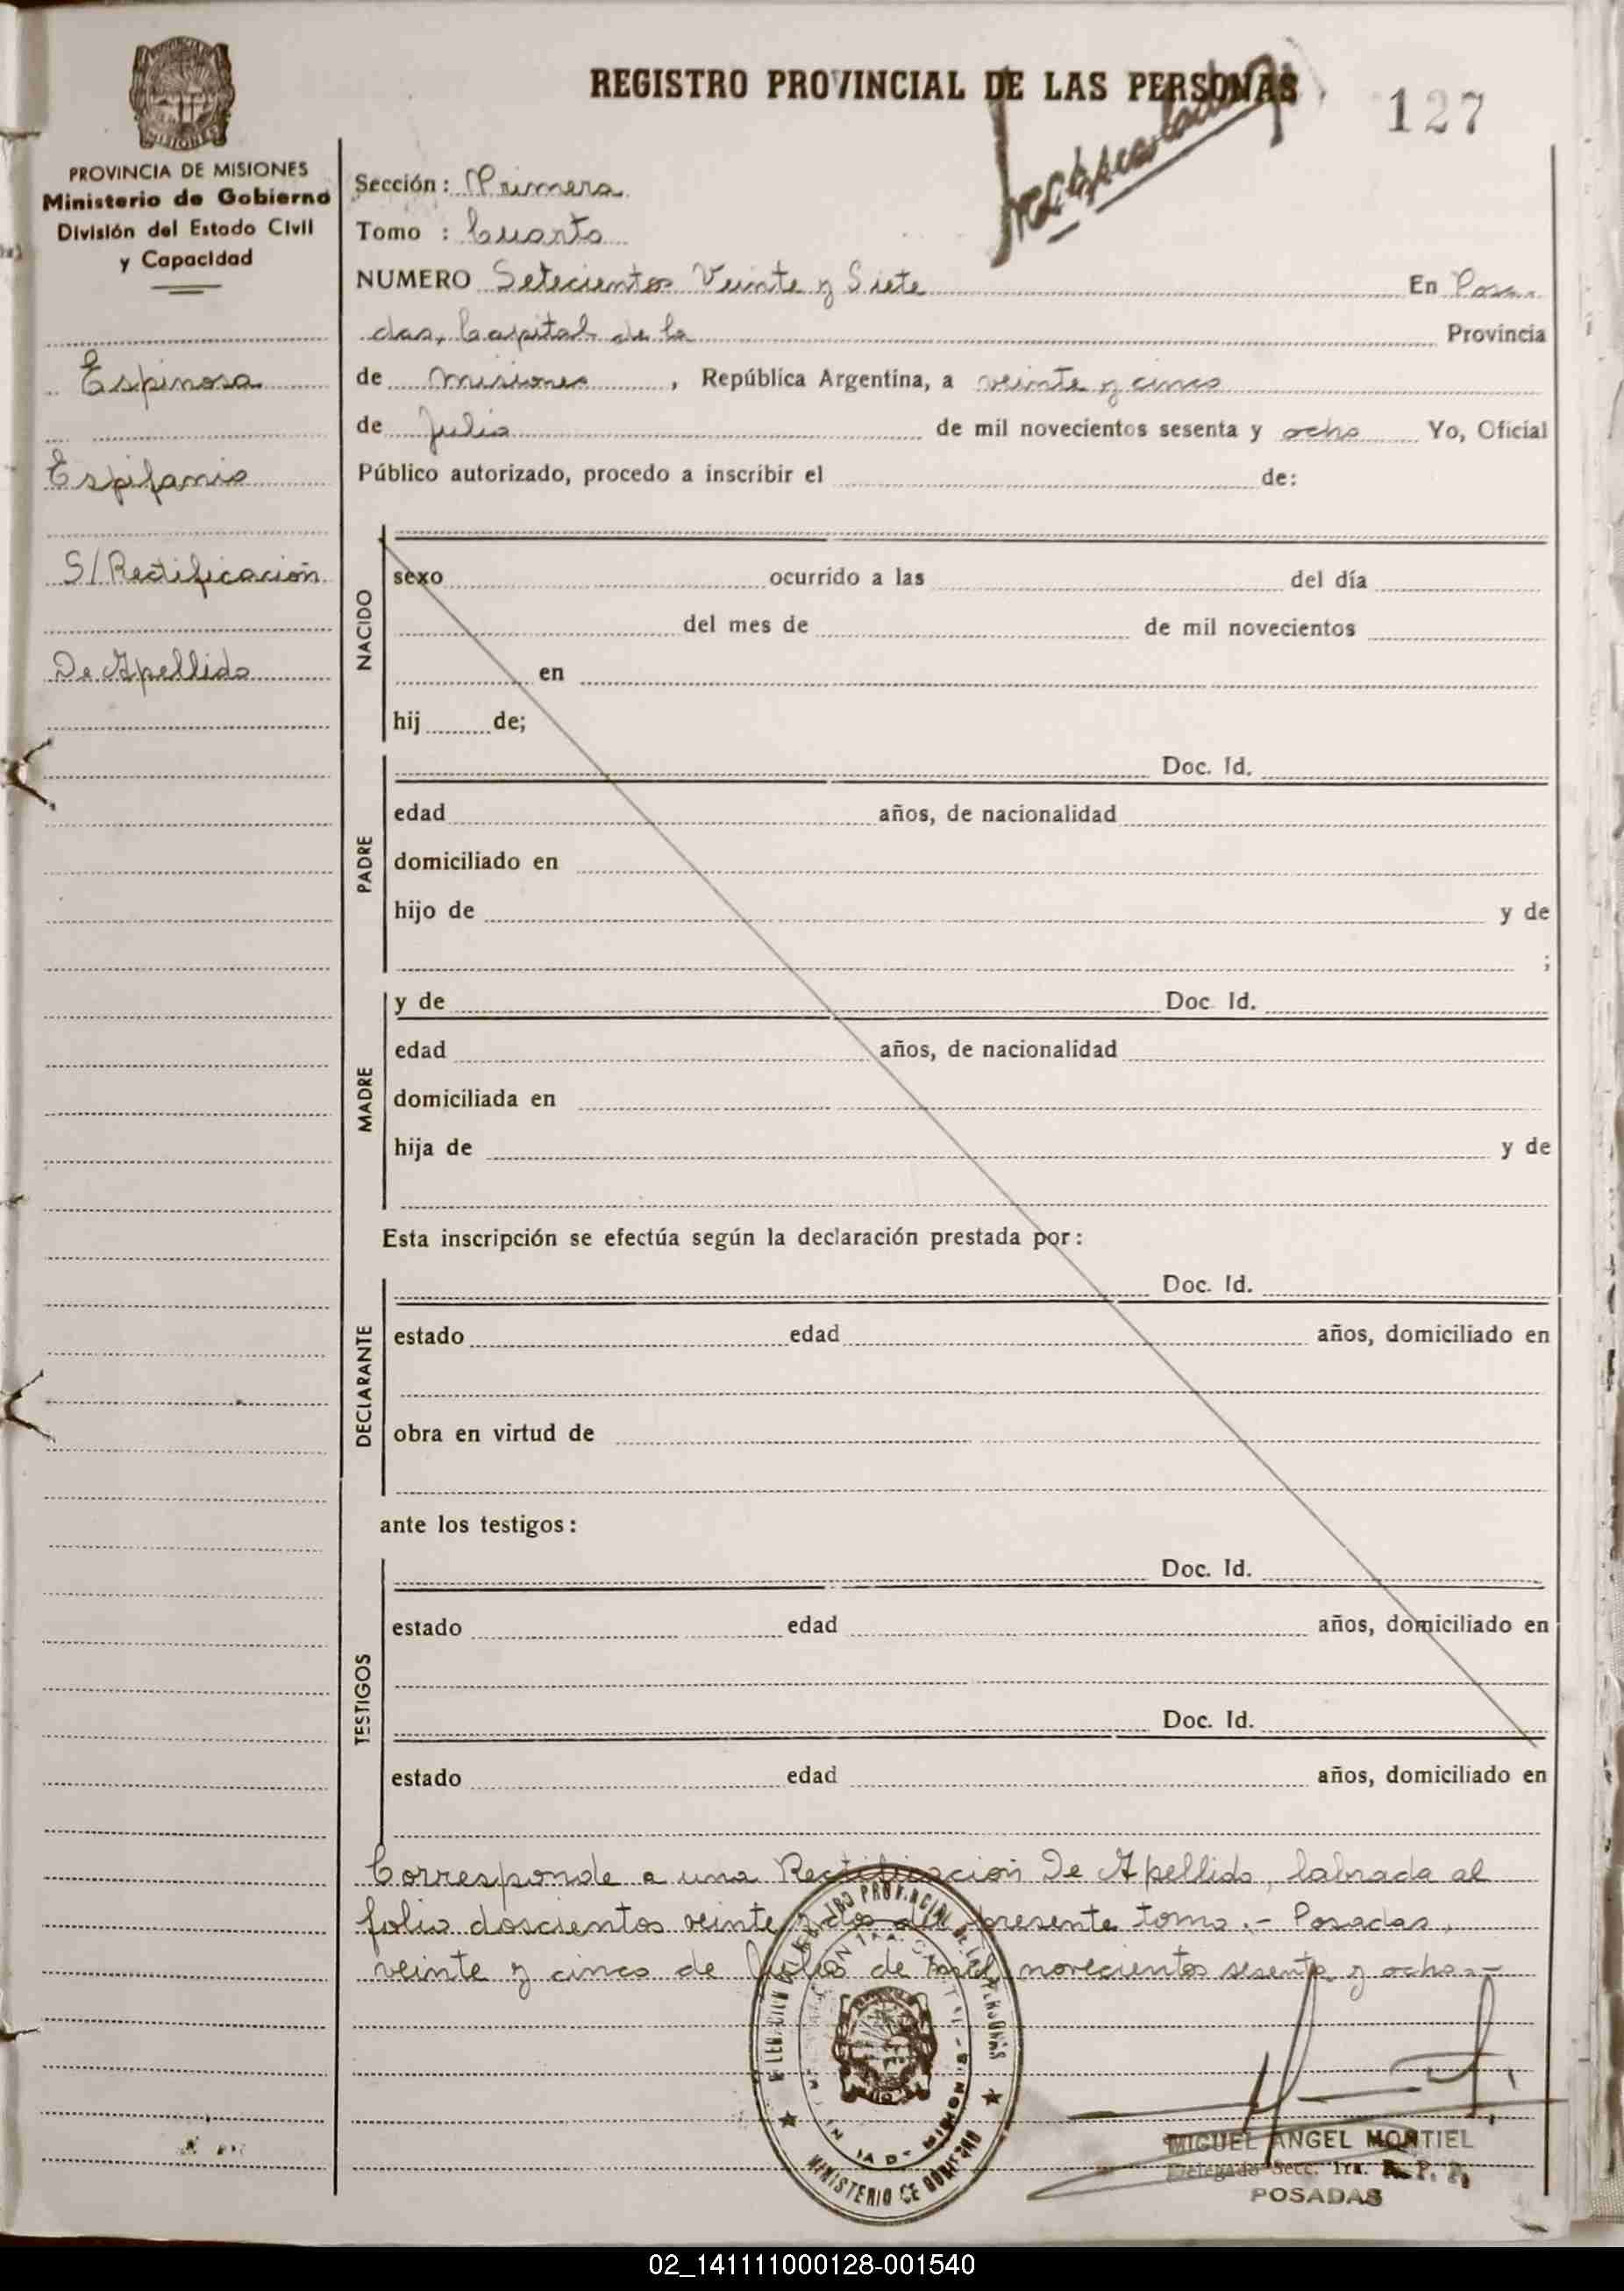 REGISTRO PROVINCIAL DE LAS PERSONAS
127
MISIONES
PROVINCIA DE MISIONES
Ministerio de Gobierno
División del Estado Civil
y Capacidad
Espinosa
Espifanio
S/Rectificación
De Apellido
Sección: Primera
Tomo : Cuarto
NUMERO Setecientos Veinte y Siete En Posa-
das, Capital de la Provincia
de Misiones, República Argentina, a veinte y cinco
de Julio de mil novecientos sesenta y ocho Yo, Oficial
Público autorizado, procedo a inscribir el de:
NACIDO
sexo ocurrido a las del día
del mes de de mil novecientos
en
hij de;
PADRE
Doc. Id.
edad años, de nacionalidad
domiciliado en
hijo de y de
;
MADRE
y de Doc. Id.
edad años, de nacionalidad
domiciliada en
hija de y de
Esta inscripción se efectúa según la declaración prestada por:
DECLARANTE
Doc. Id.
estado edad años, domiciliado en
obra en virtud de
ante los testigos:
TESTIGOS
Doc. Id.
estado edad años, domiciliado en
Doc. Id.
estado edad años, domiciliado en
Corresponde a una Rectificación De Apellido, labrada al
folio doscientos veinte y dos del presente tomo.- Posadas,
veinte y cinco de Julio de mil novecientos sesenta y ocho.-
MINISTERIO DE GOBIERNO
MIGUEL ANGEL MONTIEL
Delegado Secc. 1ra. R. P. P.
POSADAS
02_141111000128-001540